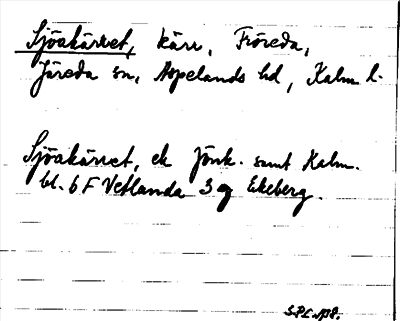 Sjöakärret, kärr, Fröreda,
Järeda sn, Aspelands hd, Kalm l.
Sjöakärret, ek Jönk. samt Kalm.
bl. 6 F Vetlanda 3 g Ekeberg.